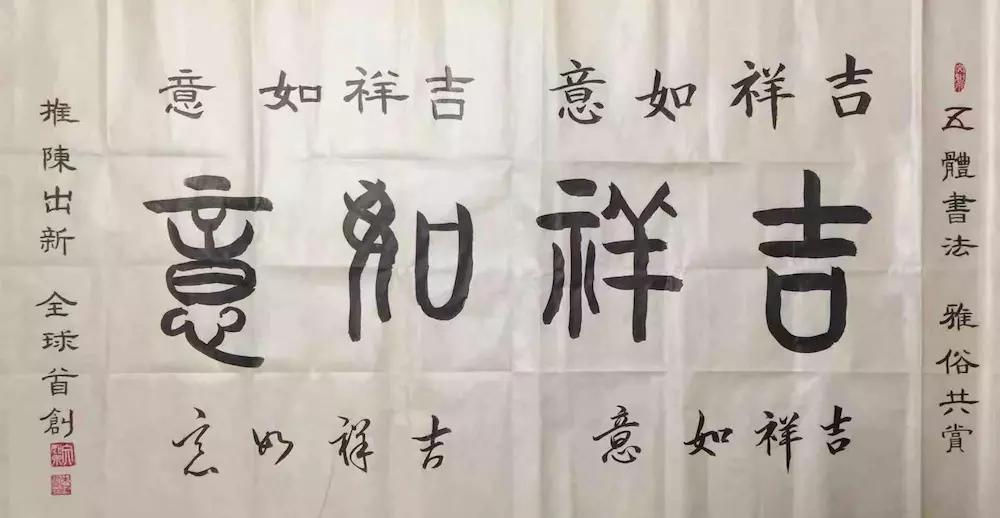 五體書法 雅俗共賞
吉祥如意
吉祥如意
吉祥如意
吉祥如意
吉祥如意
推陳出新 全球首創